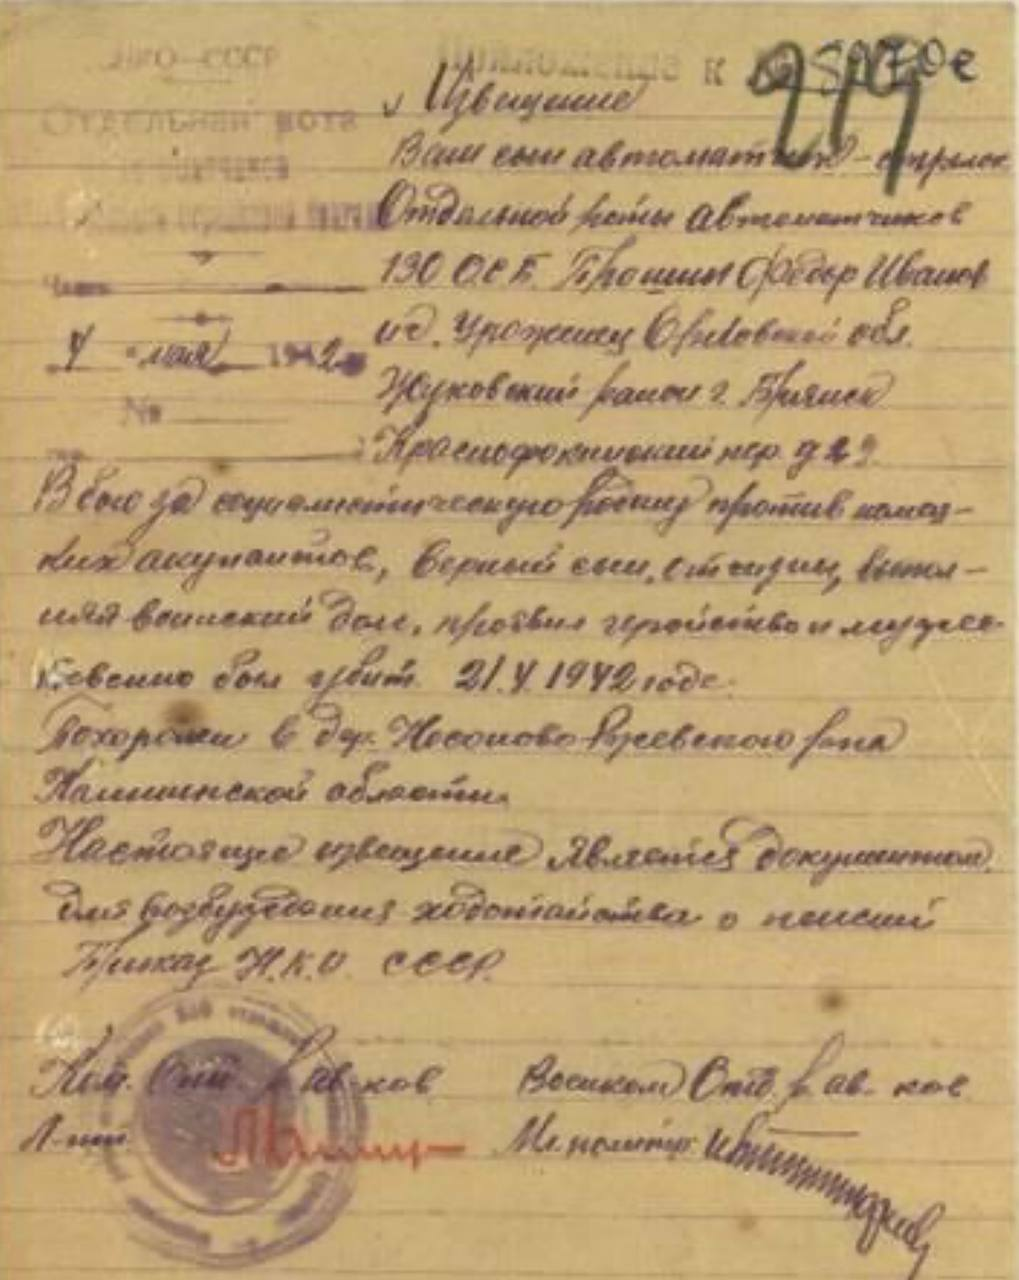 НКО СССР
Приложение к № 5970с
219
Отдельная рота
Извещение
Ваш сын автоматчик-стрелок
Отдельной роты автоматчиков
130 ОСБ. Прошин Федор Иванов
ич. Уроженец Орловской обл.
4 "мая 1942
Жуковский район г. Брянск
№
Краснофокинский пер. д 29
В бою за социалистическую родину против немец-
ких акупантов, верный сын, отчизны, выпол-
няя воинский долг, проявил геройство и муже-
ственно был убит 21.4.1942 года.
Похоронен в дер. Носоново Ржевского р-на
Калининской области.
Настоящее извещение является документом
для возбуждения ходотайства о пенсии
Приказ Н.К.О. СССР.
Ком. Отд. р. ав-ков
Военком Отд. р. ав-ков
Л-нт.
Мл. политр.